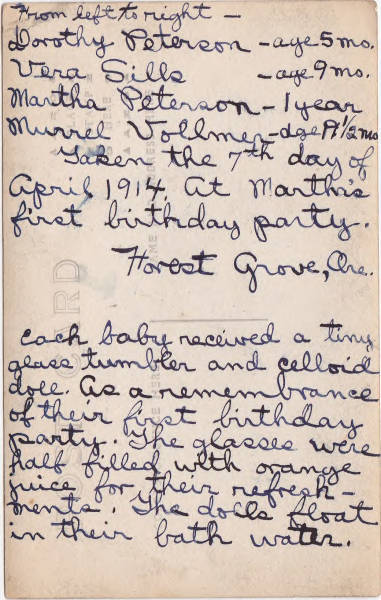 From left to right –
Dorothy Peterson – age 5 mo.
Vera Sills – age 9 mo.
Martha Peterson – 1 year
Murrel Vollmer – age 17½ mo
Taken the 7th day of
April 1914. At Martha's
first birthday party.
Forest Grove, Ore.
Each baby received a tiny
glass tumbler and celloid
doll. As a remembrance
of their first birthday
party. The glasses were
half filled with orange
juice for their refresh-
ments. The dolls float
in their bath water.